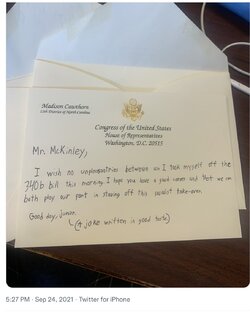 Madison Cawthorn
11th District of North Carolina
Congress of the United States
House of Representatives
Washington, D.C. 20515
Mr. McKinley,
I wish no unpleasantries between us I took myself off the
340b bill this morning. I hope you have a good career and that we can
both play our part in staving off this socialist take-over.
Good day, Junior.
(A joke written in good taste)
5:27 PM · Sep 24, 2021 · Twitter for iPhone